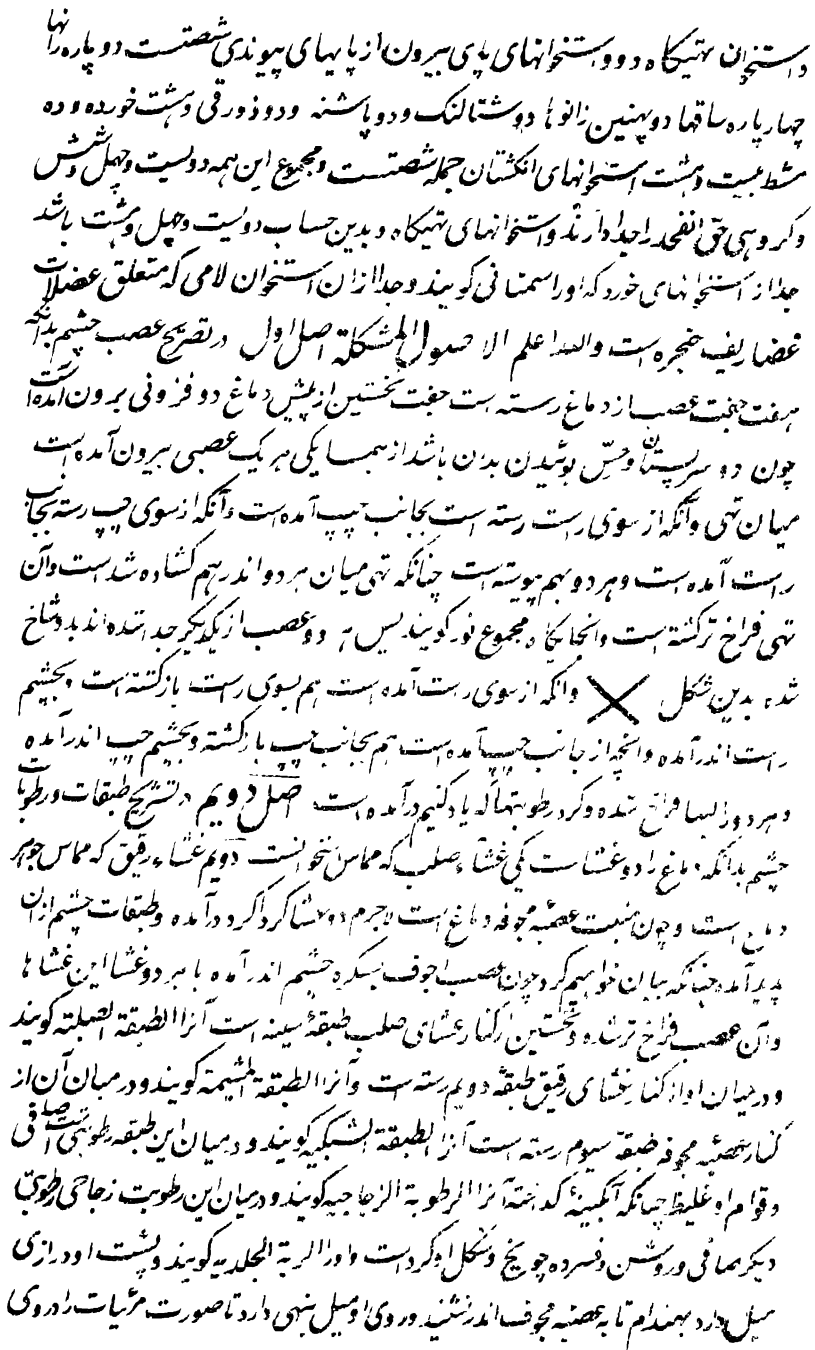 واستخوان تهیکاه دو و استخوانهای پای بیرون از پایهای پیوندی شصتست دو پاره رانها
چهار پاره ساقها دو پهنین زانوها دو شتالنک و دو پاشنه و دو زورقی و هشت خورده و ده
مشط بیست و هشت استخوانهای انکشتان جمله شصتست و مجموع این همه دویست و چهل و شش
و کروهی حق الفخذ را جدا دارند و استخوانهای تهیکاه و بدین حساب دویست و چهل و هشت باشد
جدا از استخوانهای خورد که او را سمسانی کویند و جدا از ان استخوان لامی که متعلق عضلات
غضاریف حنجره است والله اعلم الاصول المشکلة اصل اول در تشریح عصب چشم بدانکه
هفت جفت عصب از دماغ رسته است جفت نخستین از پیش دماغ دو فزونی برون آمده است
چون دو سر پستان و حسّ بوئیدن بدان باشد از همسایکی هر یک عصبی بیرون آمده است
میان تهی و آنکه از سوی راست رسته است بجانب چپ آمده است و آنکه از سوی چپ رسته بجانب
راست آمده است و هر دو بهم پیوسته است چنانکه تهی میان هر دو اندر هم کشاده شدست و آن
تهی فراخ تر کشته است و انجایکاه مجموع نور کویند پس هر دو عصب از یکدیکر جدا شده اند بدو شاخ
شده بدین شکل و انکه از سوی راست آمده است هم بسوی راست باز کشته است و بچشم
راست اندر آمده و انچه از جانب چپ آمده است هم بجانب چپ باز کشته و بچشم چپ اندر آمده
و هر دو را لبها فراخ شده و کرد رطوبتها که یاد کنیم در آمده است اصل دویم در تشریح طبقات و رطوبات
چشم بدانکه دماغ را دو غشاست یکی غشاء صلب که مماس استخوانست دویم غشاء رقیق که مماس جوهر
دماغ است و چون منبت عصبه مجوفه دماغ است لاجرم دو غشا کرداکرد در آمده و طبقات چشم از ان
پدید آمده چنانکه بیان خواهیم کرد چون عصب اجوف بسکره چشم اندر آمده با هر دو غشا این غشاها
و آن عصب فراخ تر شده و نخستین از کنار غشای صلب طبقهٔ رسته است آنرا الطبقة الصلبته کویند
و در میان او از کنار غشای رقیق طبقهٔ دویم رسته است و آنرا الطبقة المشیمة کویند و در میان آن از
کنار عصبه مجوفه طبقهٔ سیوم رسته است آنرا الطبقة الشبکیه کویند و در میان این طبقه رطوبتی است صافی
و قوام او غلیظ چنانکه آبکینهٔ کداخته آنرا الرطوبة الزجاجیه کویند و در میان این رطوبت زجاجی رطوبتی
دیکر صافی و روشن و فسرده چو یخ و شکل او کرد است و او را الرطوبة الجلدیه کویند و پشت او درازی
میل دارد بهندام تا به عصبه مجوف اندر نشیند و روی او میل بپهنی دارد تا صورت مرئیات را در وی